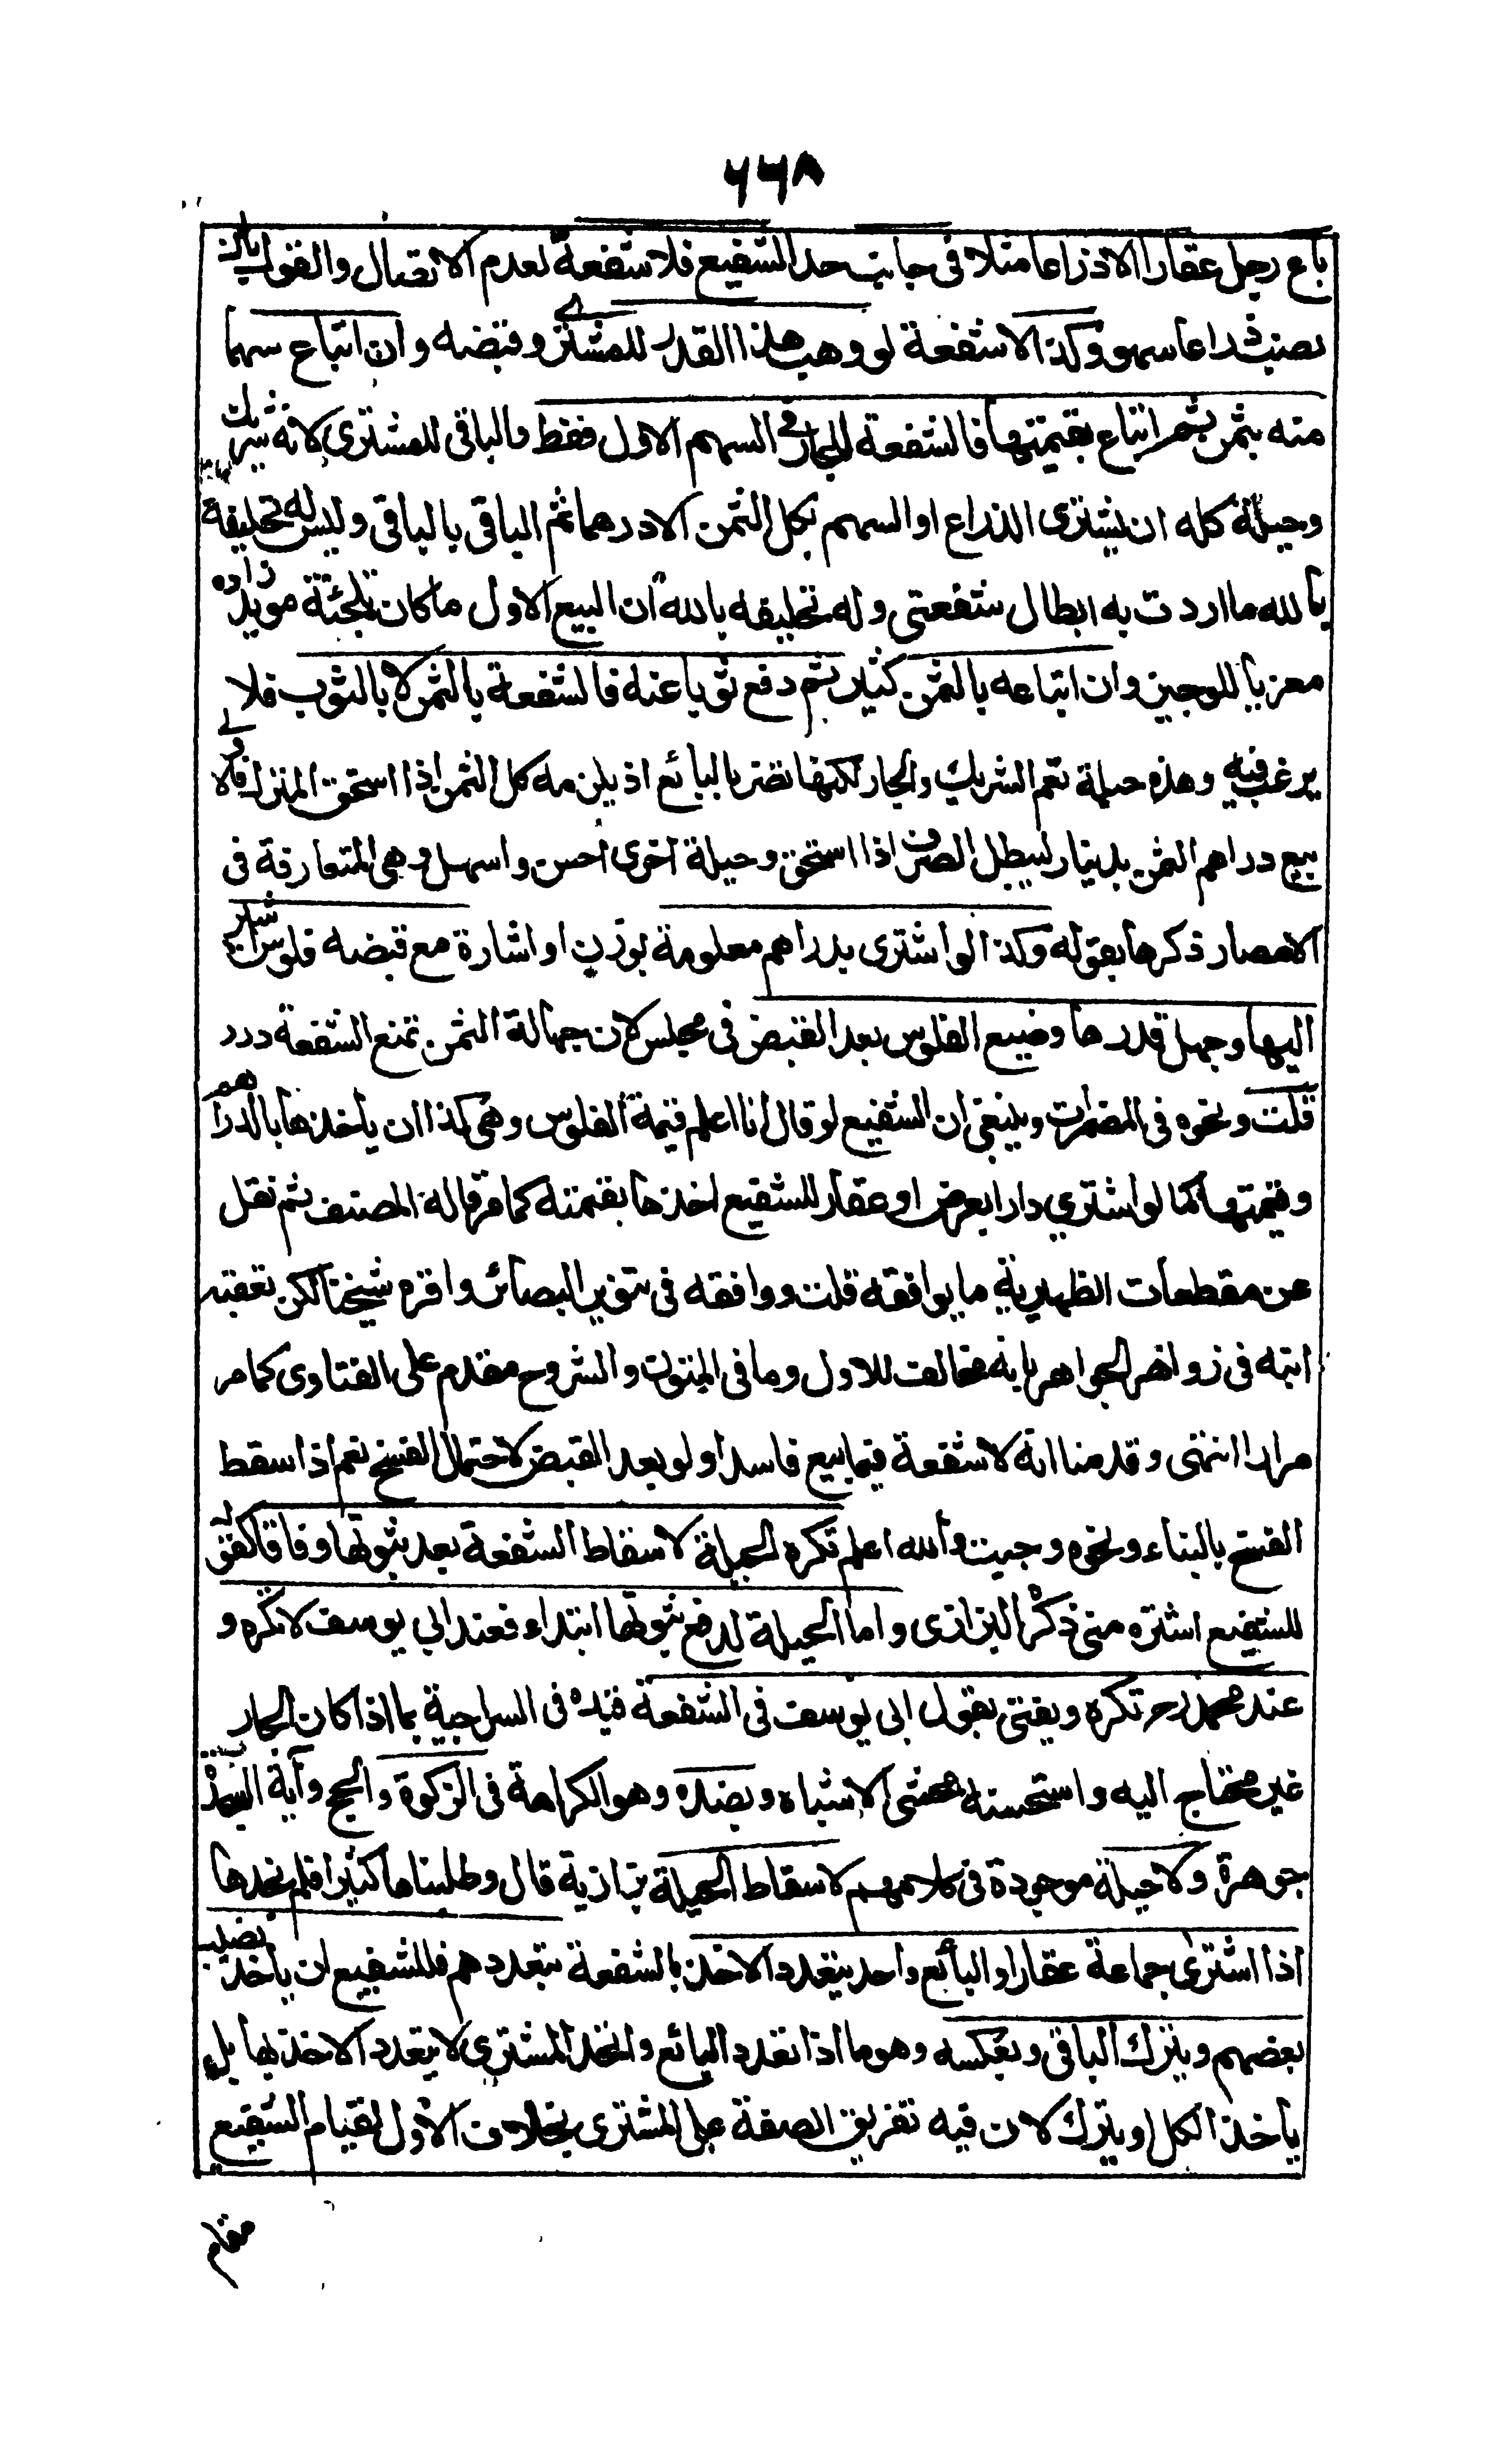 ٦٦٨
باع رجل عقارا الا ذراعا مثلا في جانب حد الشفيع فلا شفعة لعدم الاتصال والقول بان
نصب ذراعا سهو وكذا لا شفعة لو وهب هذا القدر للمشتري وقبضه وان ابتاع سهما
منه بثمن ثم ابتاع بقيتها فالشفعة للجار في السهم الاول فقط والباقي للمشتري لانه شريك
وحيلة كله ان يشتري الذراع او السهم بكل الثمن الا درهما ثم الباقي بالباقي وليس له تحليفه
بالله ما اردت به ابطال شفعتي وله تحليفه بالله ان البيع الاول ما كان تلجئة مويد زاده
معزيا للوجيز وان ابتاعه بالثمن كثير ثم دفع ثوبا عنه فالشفعة بالثمن لا بالثوب فلا
يرغب فيه وهذه حيلة تعم الشريك والجار لكنها تضر بالبائع اذ يلزمه كل الثمن اذا استحق المنزل فالاولى
بيع دراهم الثمن بدينار ليبطل الصرف اذا استحق وحيلة اخرى احسن واسهل وهي المتعارفة في
الامصار ذكرها بقوله وكذا لو اشترى بدراهم معلومة بوزن او اشارة مع قبضه فلوس اشير
اليها وجهل قدرها وضيع الفلوس بعد القبض في مجلس لان جهالة الثمن تمنع الشفعة درر
قلت ونحوه في المضمرات وينبغي ان الشفيع لو قال انا اعلم قيمة الفلوس وهي كذا ان ياخذها بالدراهم
وقيمتها كما لو اشتري دارا بعرض او عقار للشفيع اخذها بقيمته كما مر قاله المصنف ثم نقل
عن مقطعات الظهيرية ما يوافقه قلت ووافقه في تنوير البصائر واقره شيخنا لكن تعقبه
ابنه في زواهر الجواهر بانه مخالف للاول وما في المتون والشروح مقدم على الفتاوى كما مر
مرارا انتهى وقدمنا انه لا شفعة فيما بيع فاسدا ولو بعد القبض لاحتمال الفسخ نعم اذا سقط
الفسخ بالبناء ونحوه وجبت والله اعلم تكره الحيلة لاسقاط الشفعة بعد ثبوتها وفاقا كقوله
للشفيع اشتره مني ذكره البزازى واما الحيلة لدفع ثبوتها ابتداء فعند ابي يوسف لا تكره و
عند محمد رح تكره ويفتى بقول ابي يوسف في الشفعة قيده في السراجية بما اذا كان الجار
غير محتاج اليه واستحسنه محشى الاشباه وبضده وهو الكراهة في الزكوة والحج وآية السجدة
جوهرة ولا حيلة موجودة في كلامهم لاسقاط الحيلة بزازية قال وطلبناها كثيرا فلم نجدها
اذا اشترى جماعة عقارا والبائع واحد يتعدد الاخذ بالشفعة بتعددهم فللشفيع ان ياخذ نصيب
بعضهم ويترك الباقي وبعكسه وهو ما اذا تعدد البائع واتحد المشتري لا يتعدد الاخذ بها بل
ياخذ الكل او يترك لان فيه تفريق الصفقة على المشترى بخلاف الاول لقيام الشفيع
مقام